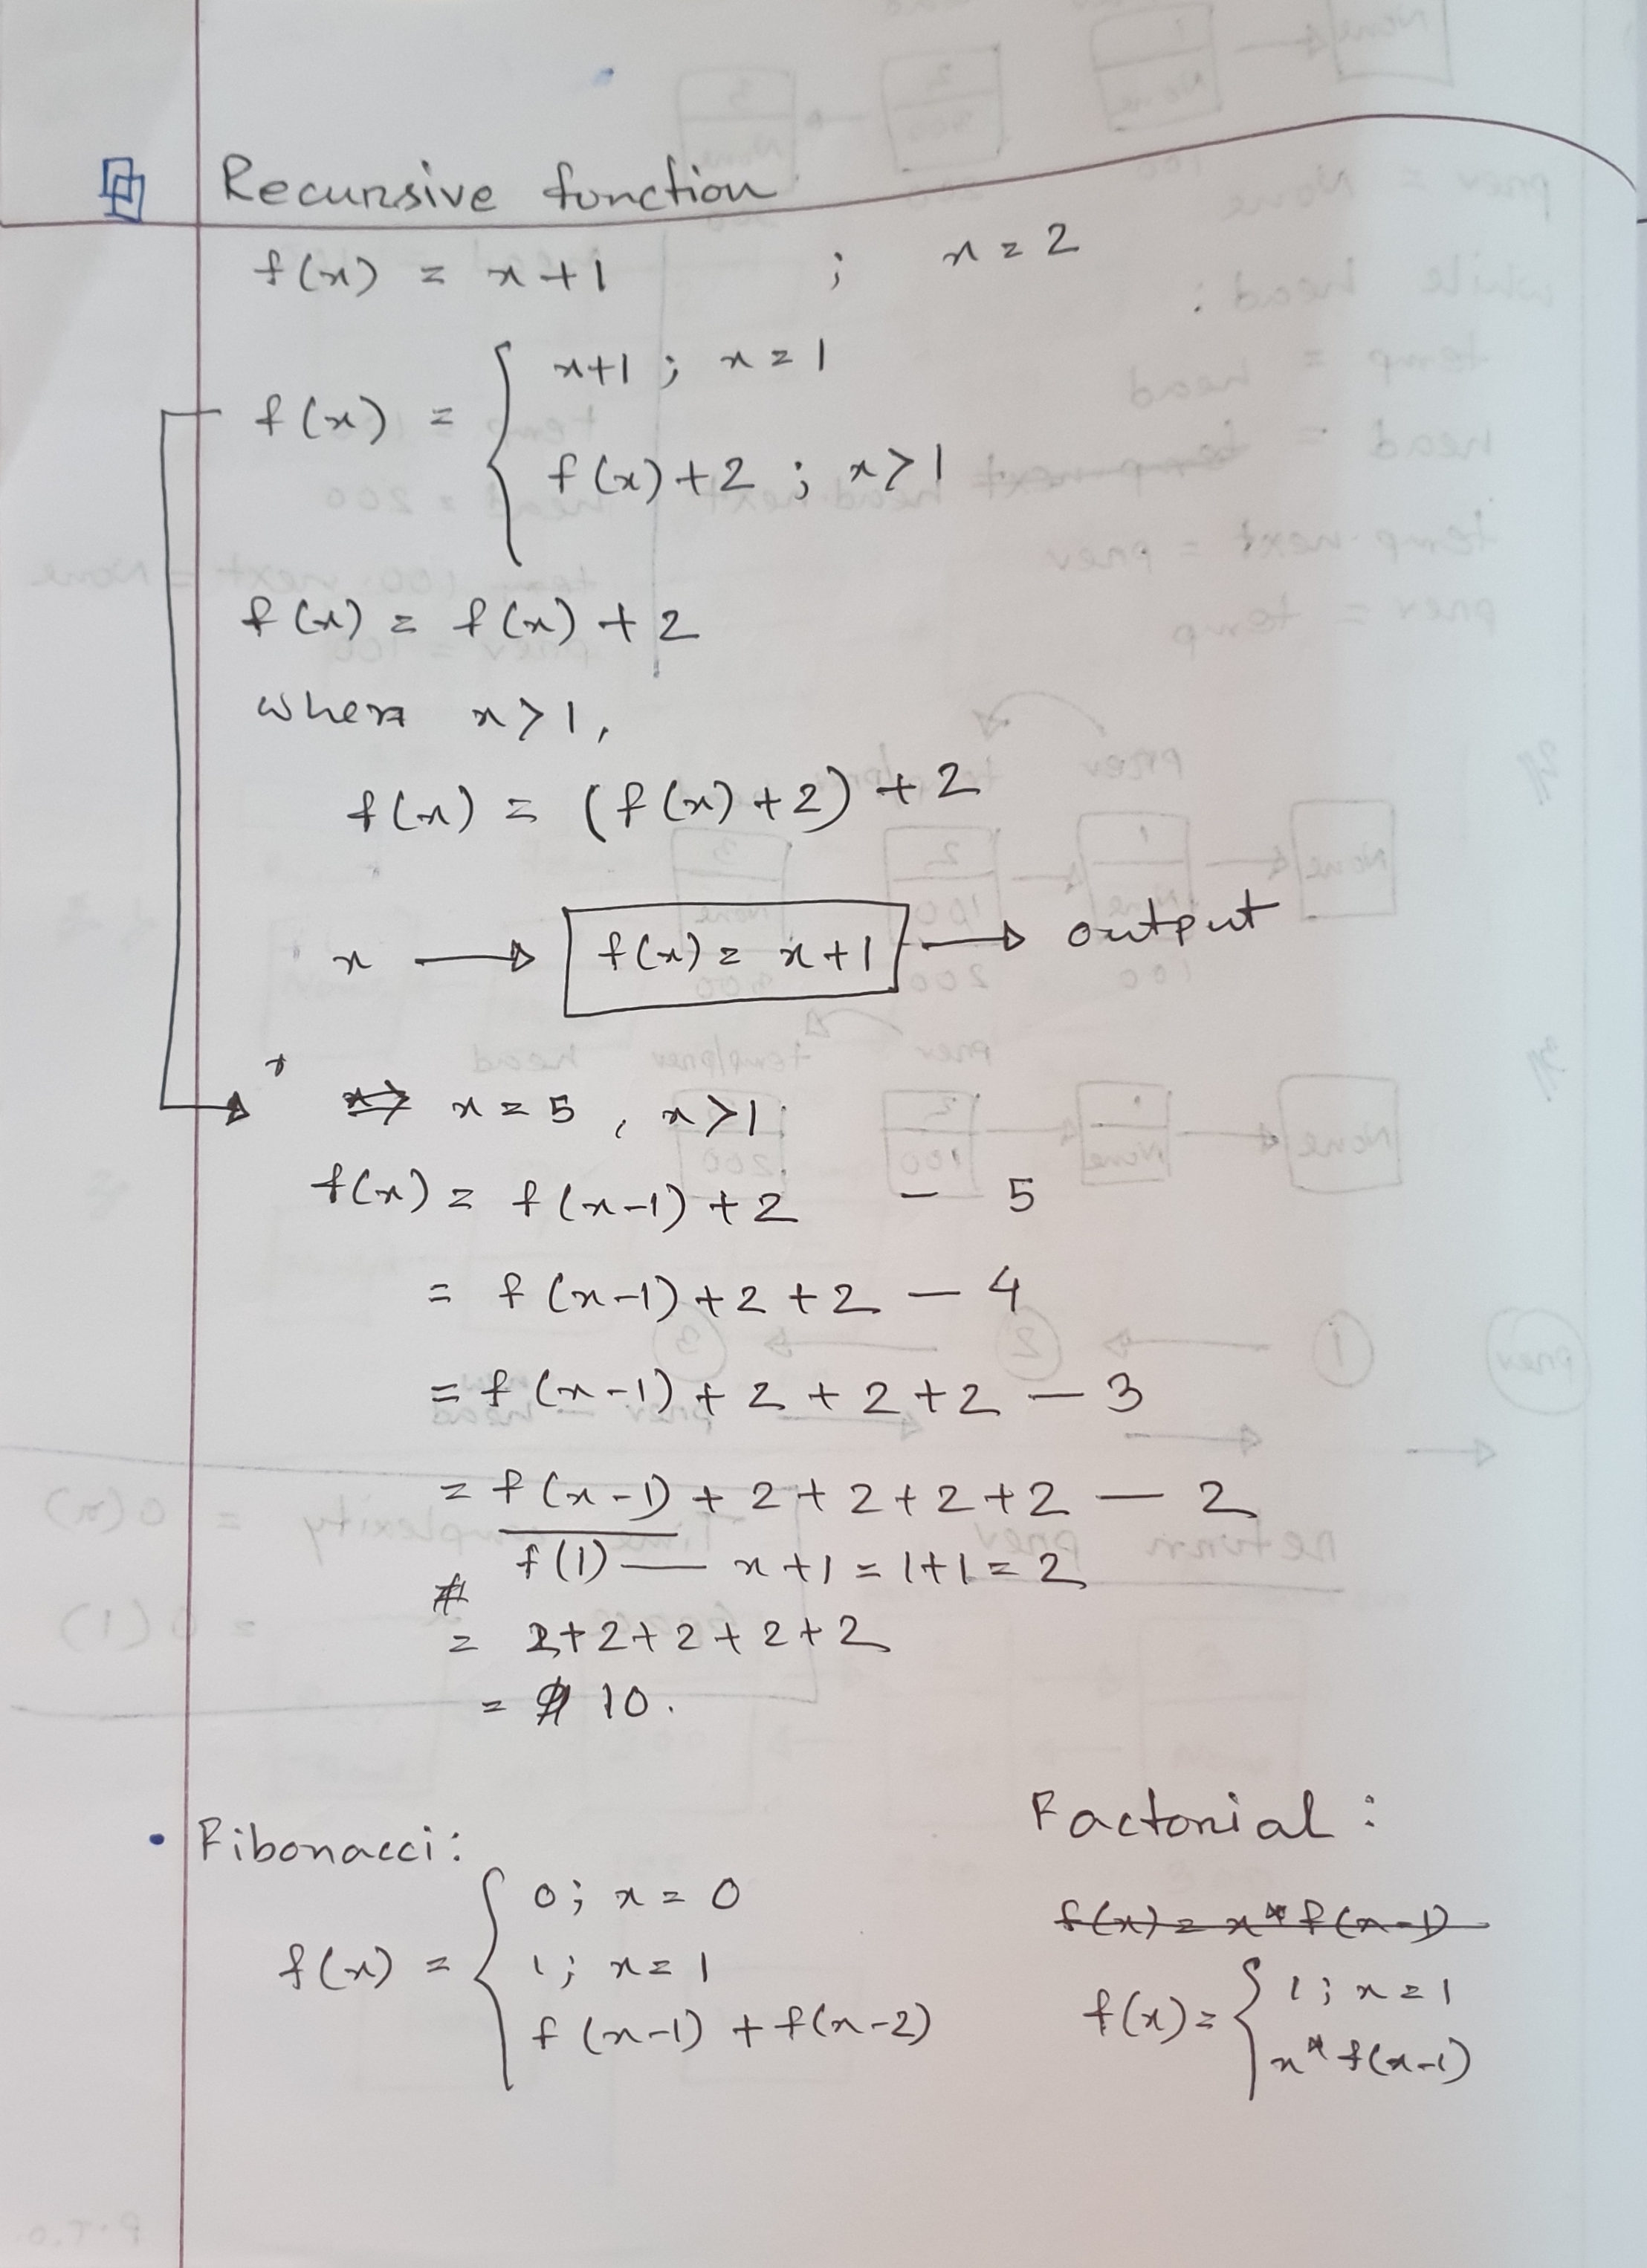 Recursive function
f(x) = x+1 ; x = 2
f(x) = { x+1 ; x = 1
f(x)+2 ; x>1
f(x) = f(x) + 2
when x>1,
f(x) = (f(x)+2) + 2
x → f(x) = x+1 → output
x = 5, x>1
f(x) = f(x-1)+2 — 5
= f(x-1)+2+2 — 4
= f(x-1)+2+2+2 — 3
= f(x-1)+2+2+2+2 — 2
f(1) — x+1 = 1+1 = 2
= 2+2+2+2+2
= 10.
• Fibonacci:
f(x) = { 0; x = 0
1; x = 1
f(x-1) + f(x-2)
Factorial:
f(x) = x * f(x-1)
f(x) = { 1; x = 1
x * f(x-1)